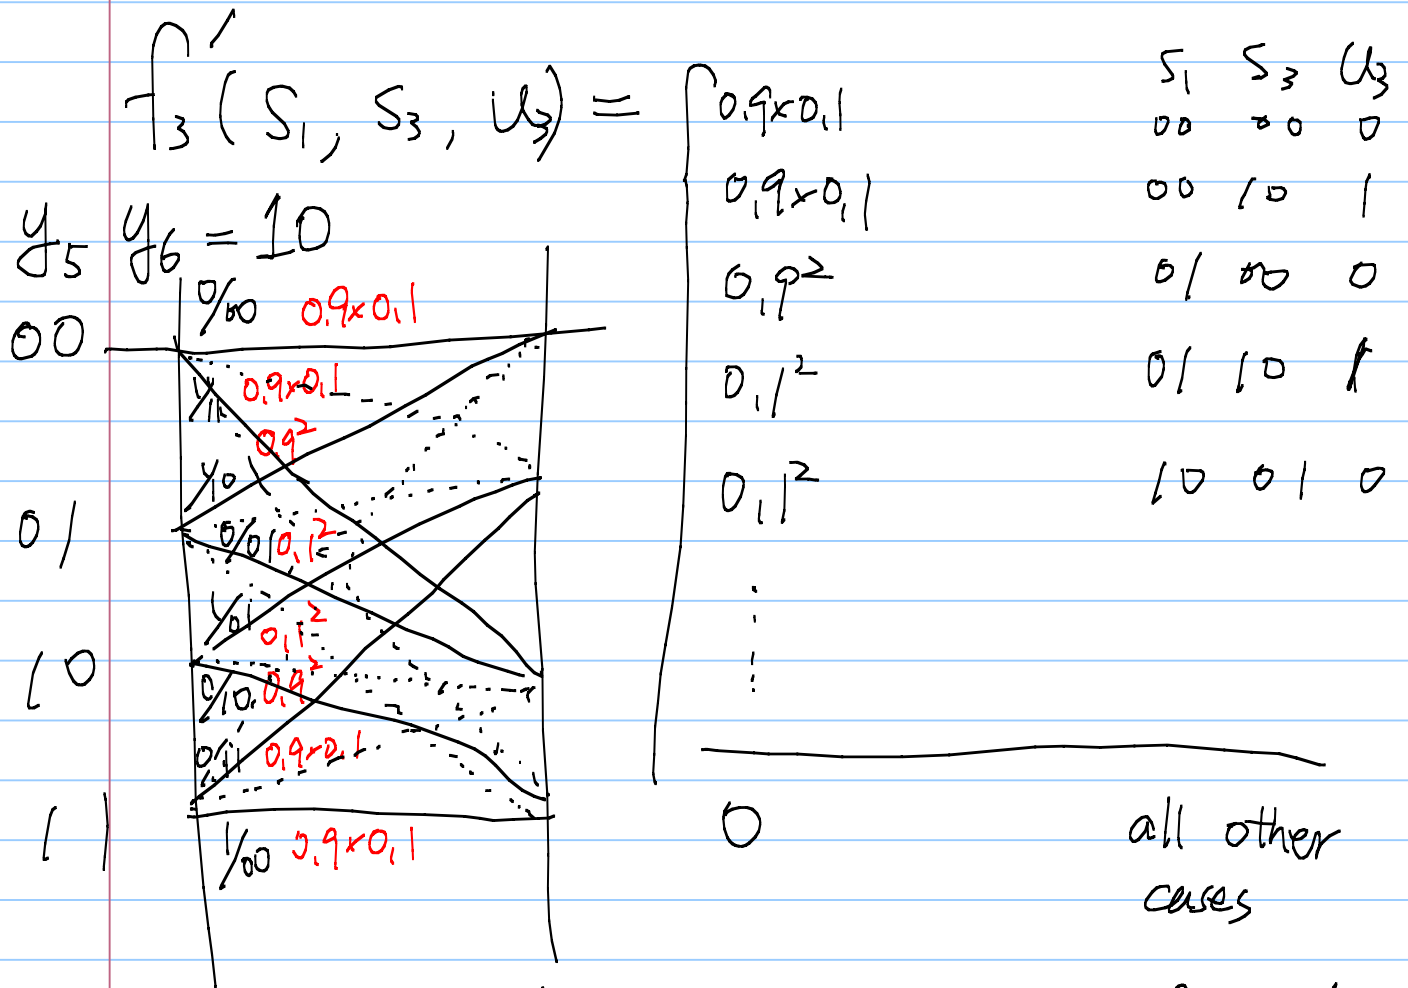 f₃′(S₁, S₃, U₃) =
S₁ S₃ U₃
0.9×0.1 00 00 0
0.9×0.1 00 10 1
0.9² 01 00 0
0.1² 01 10 1
0.1² 10 01 0
0 all other
cases
y₅ y₆ = 10
0/00 0.9×0.1
00
1/11 0.9×0.1
0.9²
1/10
01
0/01 0.1²
1/01 0.1²
10
0/10 0.9²
0/11 0.9×0.1
11
1/00 0.9×0.1